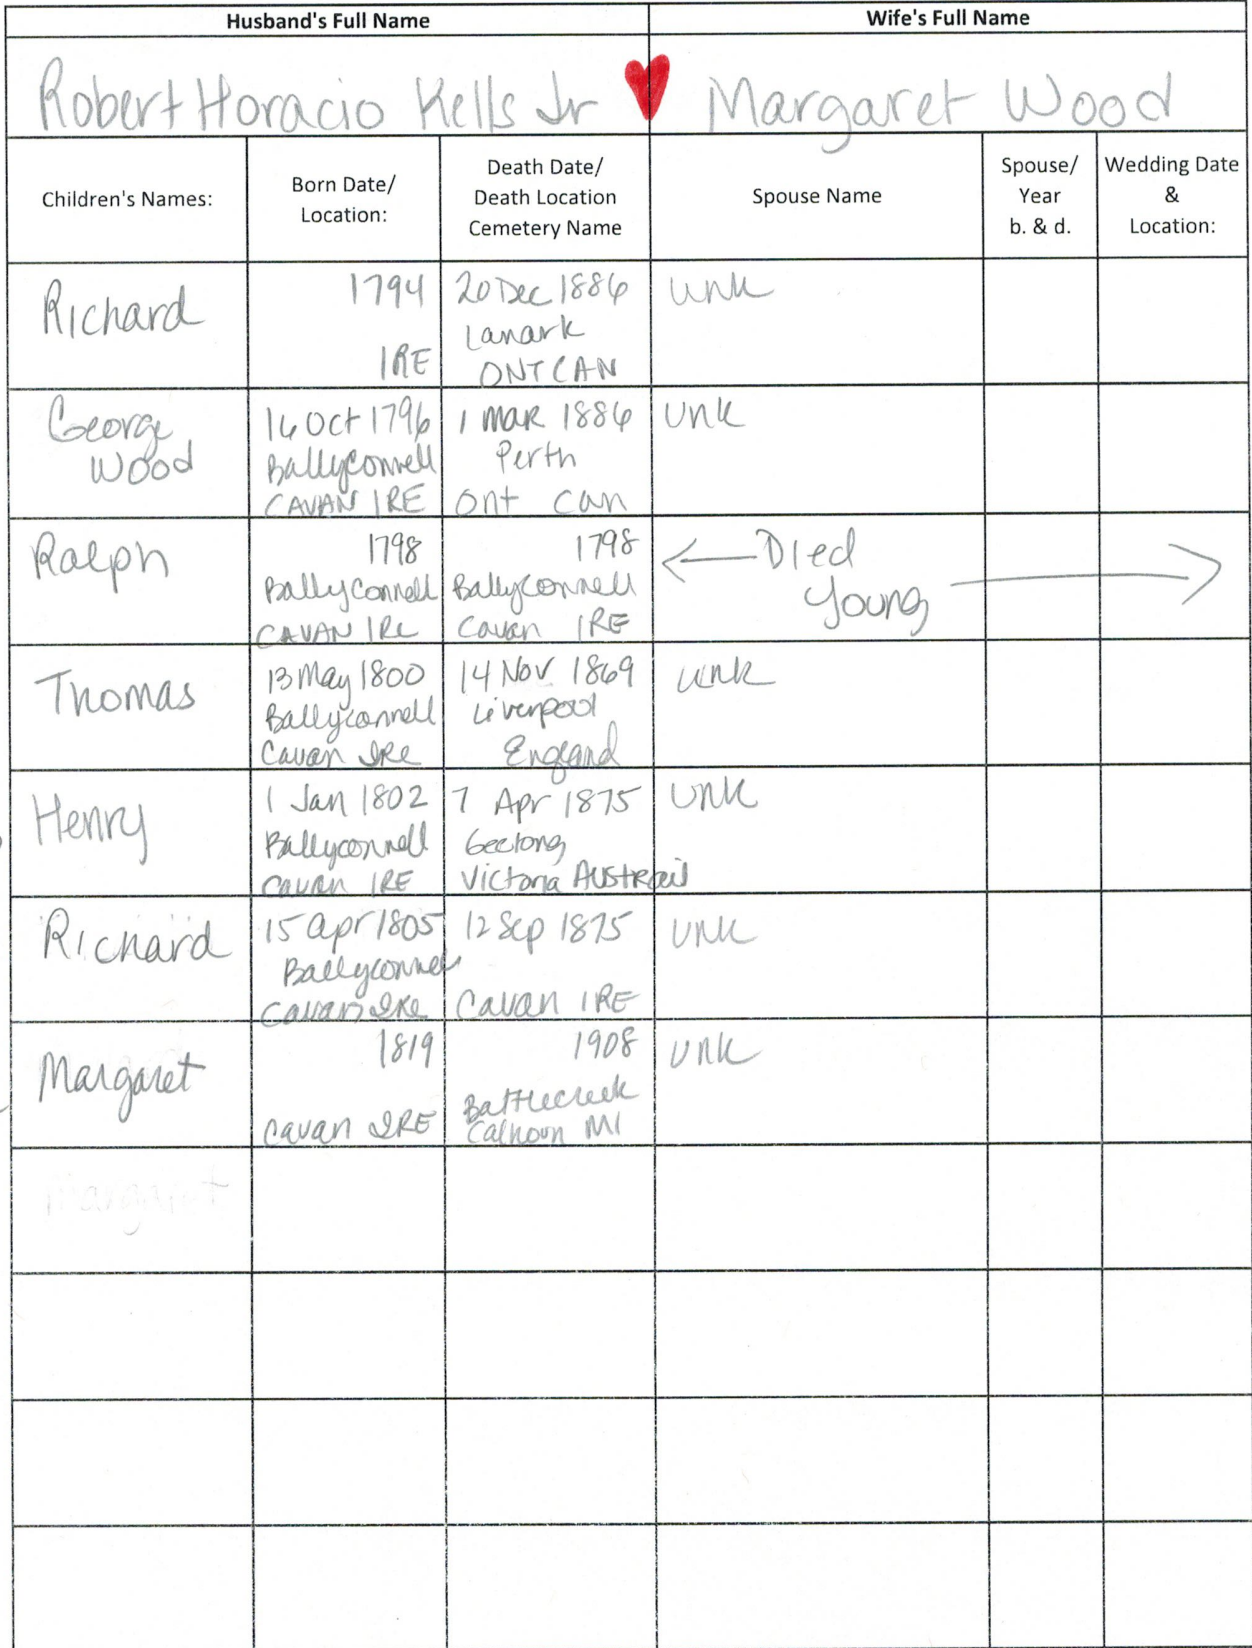 Husband's Full Name
Wife's Full Name
Robert Horacio Kells Jr
Margaret Wood
Children's Names:
Born Date/
Location:
Death Date/
Death Location
Cemetery Name
Spouse Name
Spouse/
Year
b. & d.
Wedding Date
&
Location:
Richard
1794
IRE
20 Dec 1886
Lanark
ONT CAN
unk
George
Wood
16 Oct 1796
Ballyconnell
CAVAN IRE
1 MAR 1886
Perth
Ont Can
unk
Ralph
1798
Ballyconnell
CAVAN IRE
1798
Ballyconnell
Cavan IRE
Died
Young
Thomas
13 May 1800
Ballyconnell
Cavan Ire
14 Nov 1869
Liverpool
England
unk
Henry
1 Jan 1802
Ballyconnell
Cavan IRE
7 Apr 1875
Geelong
Victoria Austrail
unk
Richard
15 apr 1805
Ballyconnel
Cavan Ire
12 Sep 1875
Cavan IRE
unk
Margaret
1819
Cavan IRE
1908
Battlecreek
Calhoun MI
unk
margaret